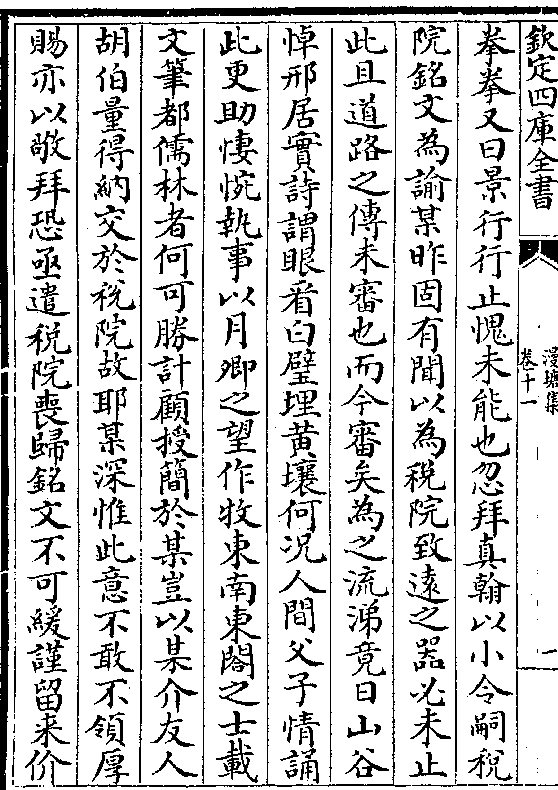 欽定四庫全書
漫塘集
卷十一
一
拳拳又曰景行行止愧未能也忽拜真翰以小令嗣稅
院銘文為諭某昨固有聞以為稅院致遠之器必未止
此且道路之傳未審也而今審矣為之流涕竟日山谷
悼邢居實詩謂眼看白璧埋黃壤何况人間父子情誦
此更助悽惋執事以月卿之望作牧東南東閣之士載
文筆都儒林者何可勝計顧授簡於某豈以某介友人
胡伯量得納交於稅院故耶某深惟此意不敢不領厚
賜亦以敬拜恐亟遣稅院喪歸銘文不可緩謹留来价